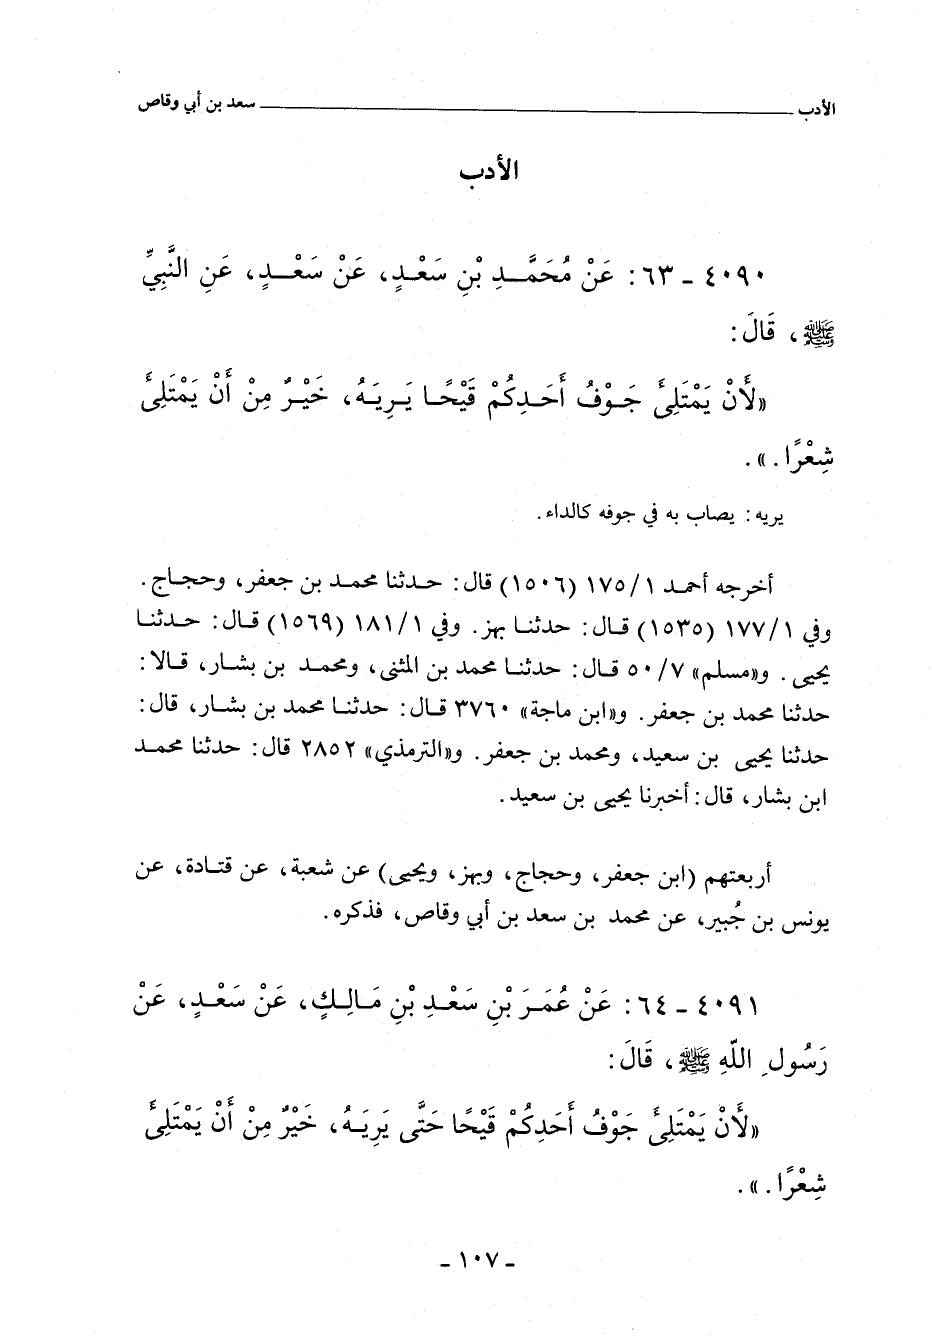 الأدب ــــــــــ سعد بن أبي وقاص
الأدب
٤٠٩٠ ـ ٦٣: عَنْ مُحَمَّدِ بْنِ سَعْدٍ، عَنْ سَعْدٍ، عَنِ النَّبِيِّ
ﷺ، قَالَ:
«لَأَنْ يَمْتَلِئَ جَوْفُ أَحَدِكُمْ قَيْحًا يَرِيَهُ، خَيْرٌ مِنْ أَنْ يَمْتَلِئَ
شِعْرًا.».
يريه: يصاب به في جوفه كالداء.
أخرجه أحمد ١/ ١٧٥ (١٥٠٦) قال: حدثنا محمد بن جعفر، وحجاج.
وفي ١/ ١٧٧ (١٥٣٥) قال: حدثنا بهز. وفي ١/ ١٨١ (١٥٦٩) قال: حدثنا
يحيى. و«مسلم» ٧/ ٥٠ قال: حدثنا محمد بن المثنى، ومحمد بن بشار، قالا:
حدثنا محمد بن جعفر. و«ابن ماجة» ٣٧٦٠ قال: حدثنا محمد بن بشار، قال:
حدثنا يحيى بن سعيد، ومحمد بن جعفر. و«الترمذي» ٢٨٥٢ قال: حدثنا محمد
ابن بشار، قال: أخبرنا يحيى بن سعيد.
أربعتهم (ابن جعفر، وحجاج، وبهز، ويحيى) عن شعبة، عن قتادة، عن
يونس بن جُبير، عن محمد بن سعد بن أبي وقاص، فذكره.
٤٠٩١ ـ ٦٤: عَنْ عُمَرَ بْنِ سَعْدِ بْنِ مَالِكٍ، عَنْ سَعْدٍ، عَنْ
رَسُولِ اللّهِ ﷺ، قَالَ:
«لَأَنْ يَمْتَلِئَ جَوْفُ أَحَدِكُمْ قَيْحًا حَتَّى يَرِيَهُ، خَيْرٌ مِنْ أَنْ يَمْتَلِئَ
شِعْرًا.».
ـ ١٠٧ ـ